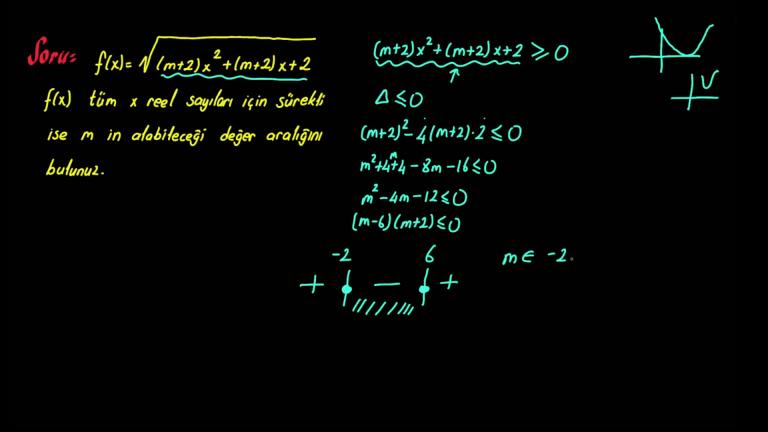 Soru= f(x)=√(m+2)x²+(m+2)x+2
f(x) tüm x reel sayıları için sürekli
ise m in alabileceği değer aralığını
bulunuz.
(m+2)x²+(m+2)x+2 ≥ 0
Δ ≤ 0
(m+2)² - 4(m+2)·2 ≤ 0
m²+4m+4 - 8m - 16 ≤ 0
m² - 4m - 12 ≤ 0
(m-6)(m+2) ≤ 0
-2 6
+ — +
m ∈ -2